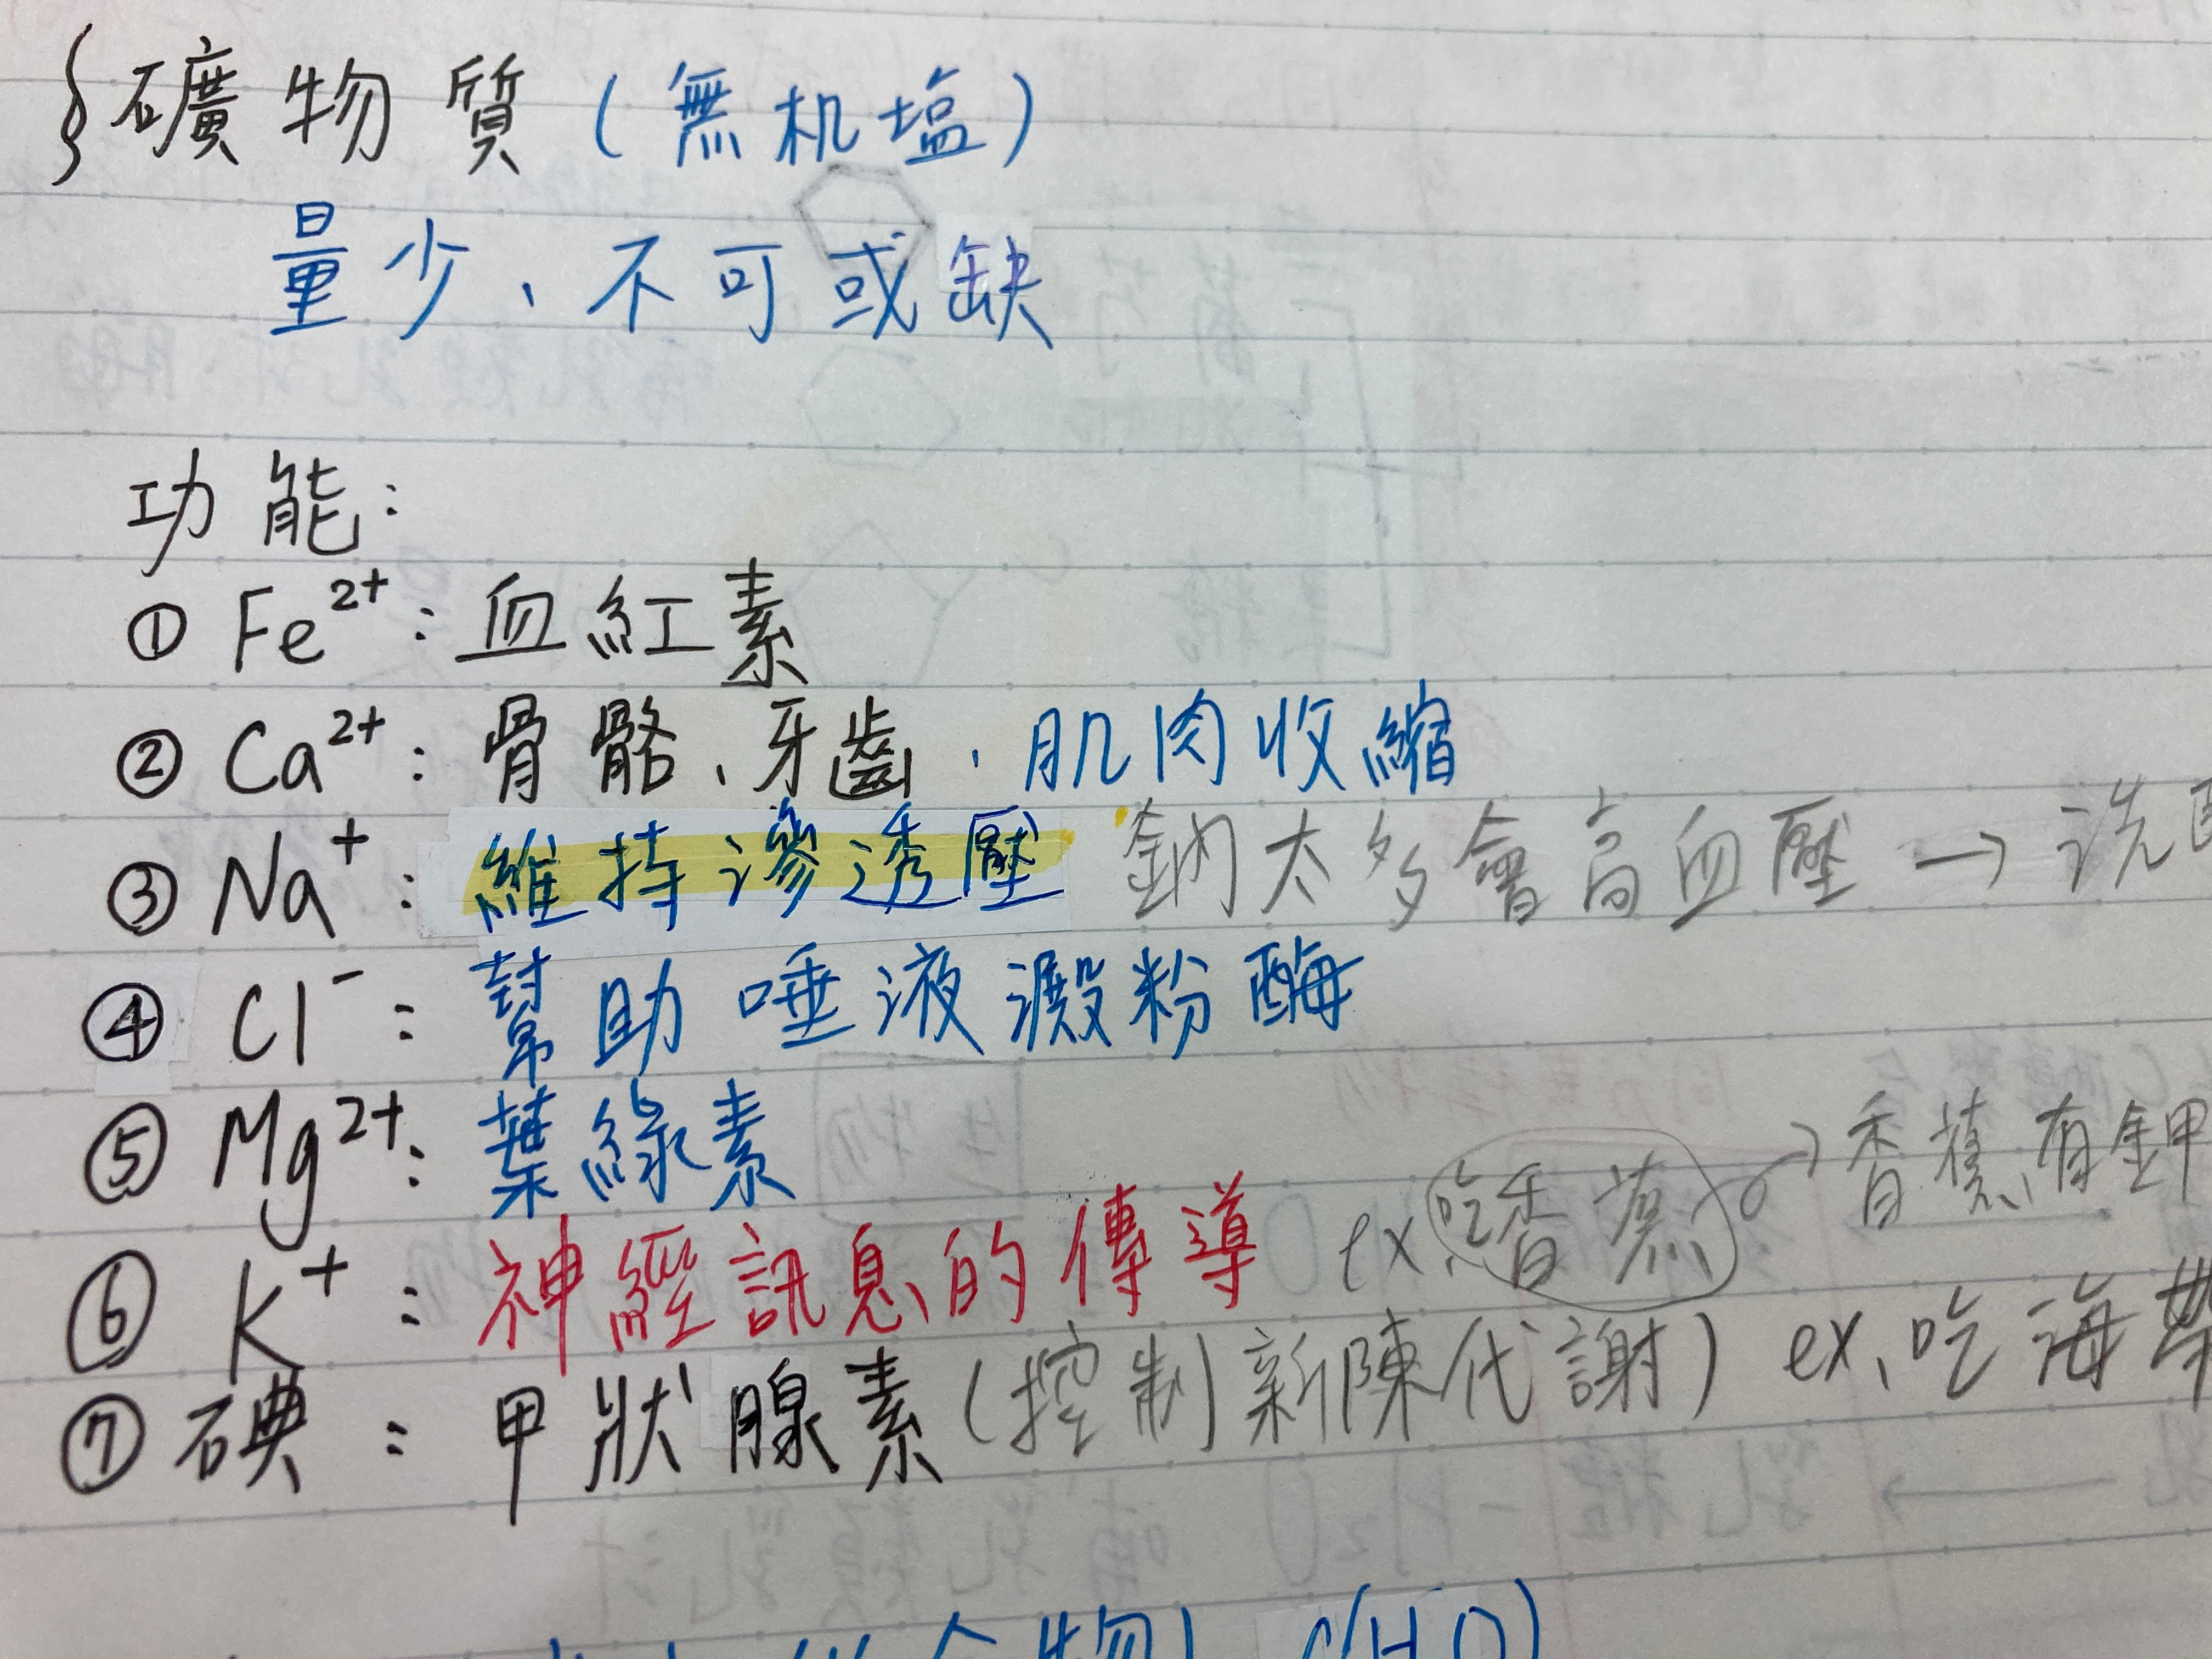 §礦物質(無机塩)
量少、不可或缺
功能:
① Fe²⁺: 血紅素
② Ca²⁺: 骨骼、牙齒、肌肉收縮
③ Na⁺: 維持滲透壓 鈉太多會高血壓 → 洗
④ Cl⁻: 幫助唾液澱粉酶
⑤ Mg²⁺: 葉綠素
香蕉有鉀
⑥ K⁺: 神經訊息的傳導 ex.吃香蕉
⑦ 碘: 甲狀腺素(控制新陳代謝) ex、吃海帶